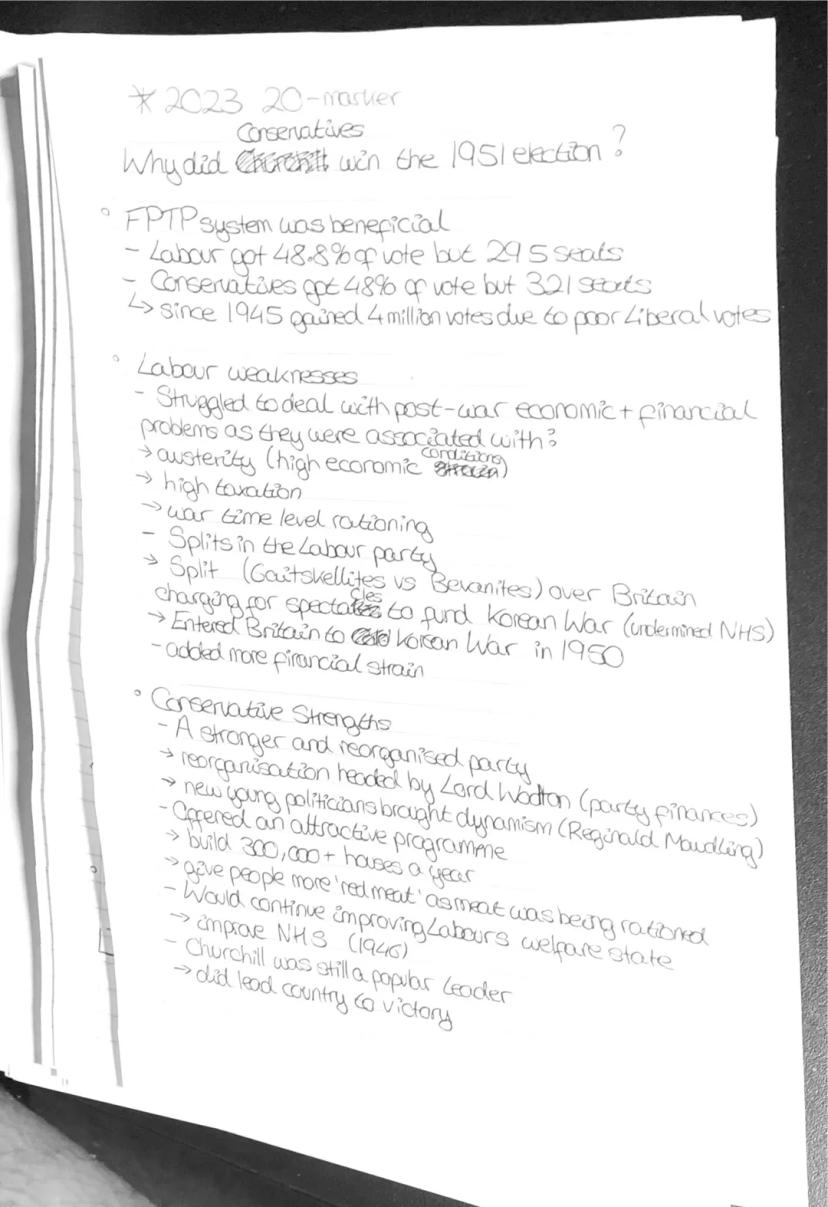 * 2023 20-marker
Conservatives
Why did win the 1951 election?
° FPTP system was beneficial
- Labour got 48.8% of vote but 295 seats
- Conservatives got 48% of vote but 321 seats
↳ since 1945 gained 4 million votes due to poor Liberal votes
° Labour weaknesses
- Struggled to deal with post-war economic + financial
problems as they were associated with:
→ austerity (high economic conditions)
→ high taxation
→ war time level rationing
- Splits in the Labour party
→ Split (Gaitskellites vs Bevanites) over Britain
charging for spectacles to fund Korean War (undermined NHS)
→ Entered Britain to Korean War in 1950
- added more financial strain
° Conservative Strengths
- A stronger and reorganised party
→ reorganisation headed by Lord Woolton (party finances)
→ new young politicians brought dynamism (Reginald Maudling)
- Offered an attractive programme
→ build 300,000+ houses a year
→ give people more 'red meat' as meat was being rationed
- Would continue improving Labour's welfare state
→ improve NHS (1946)
- Churchill was still a popular leader
→ did lead country to victory